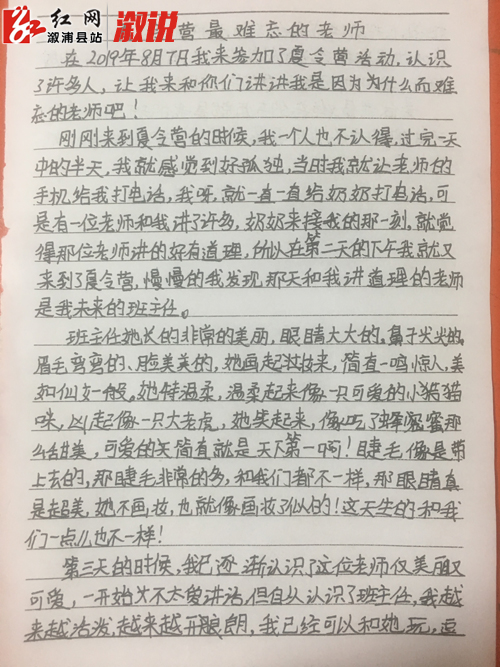 红网 溆说
溆浦县站
营最难忘的老师
在2019年8月7日我来参加了夏令营活动,认识
了许多人,让我来和你们讲讲我是因为什么而难
忘的老师吧!
刚刚来到夏令营的时候,我一个人也不认得,过完一天
中的半天,我就感觉到好孤独,当时我就让老师的
手机给我打电话,我呀,就一直一直给奶奶打电话,可
是有一位老师和我讲了许多,奶奶来接我的那一刻,就觉
得那位老师讲的好有道理,所以在第二天的下午我就又
来到了夏令营,慢慢的我发现那天和我讲道理的老师
是我未来的班主任。
班主任她长的非常的美丽,眼睛大大的,鼻子尖尖的,
眉毛弯弯的、脸美美的,她画起妆来,简直一鸣惊人,美
如仙女一般。她特温柔,温柔起来像一只可爱的小猫猫
咪,凶起像一只大老虎,她笑起来,像吃了蜂窝蜜那
么甜美,可爱的笑简直就是天下第一啊!睫毛像是带
上去的,那睫毛非常的多,和我们都不一样,那眼睛真
是超美,她不画妆,也就像画妆了似的!这天生的和我
们一点儿也不一样!
第三天的时候,我已逐渐认识了这位老师仅美丽又
可爱,一开始 不太爱讲话但自从认识了班主任,我越
来越活泼,越来越开朗,我已经可以和她玩,逗